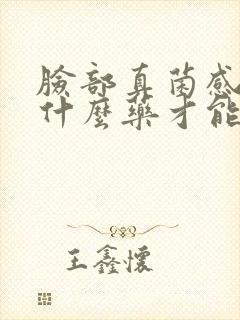 臉部真菌感
什麼藥才能
王鑫懷